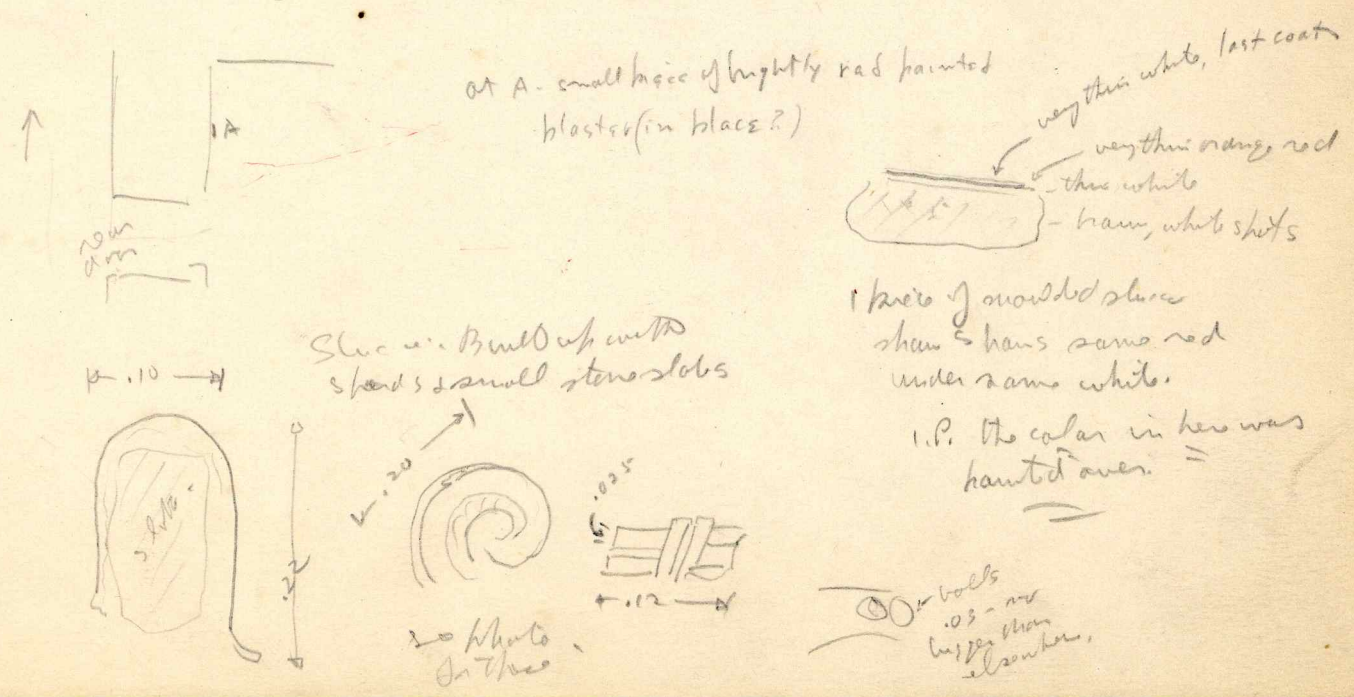 at A - small piece of brightly red painted
plaster (in place?)
A
near
door
very thin white, last coat
very thin orange red
- thin white
- brown, white spots
1 piece of moulded stucco
shows same red
under same white.
I.P. the color in here was
painted over.
Built up with
sherds & small stone slabs
.10
.20
.025
.22
.12
photo
balls
.03 - no
bigger than
elsewhere.